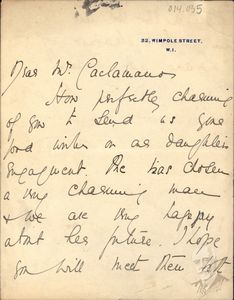 014.035
32, WIMPOLE STREET,
W.1.
Dear Mr. Caclamanos
How perfectly charming
of you to send us your
good wishes on our daughters
engagement. She has chosen
a very charming man
& we are very happy
about her future. I hope
you will meet them at